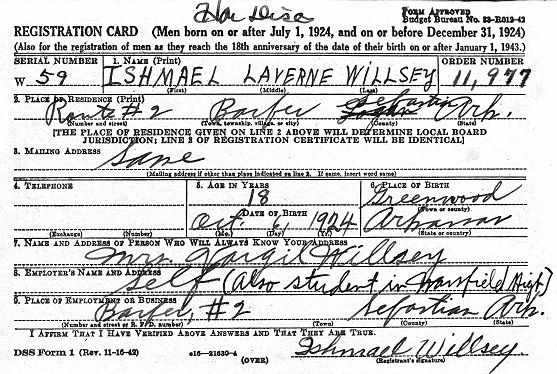 Hon Disc
FORM APPROVED
Budget Bureau No. 33-R012-42
REGISTRATION CARD (Men born on or after July 1, 1924, and on or before December 31, 1924)
(Also for the registration of men as they reach the 18th anniversary of the date of their birth on or after January 1, 1943.)
SERIAL NUMBER 1. NAME (Print) ORDER NUMBER
W 59 ISHMAEL LAVERNE WILLSEY 11,977
(First) (Middle) (Last)
2. PLACE OF RESIDENCE (Print)
Route #2 Barber Logan Sebastian Ark.
(Number and street) (Town, township, village, or city) (County) (State)
[THE PLACE OF RESIDENCE GIVEN ON LINE 2 ABOVE WILL DETERMINE LOCAL BOARD
JURISDICTION; LINE 2 OF REGISTRATION CERTIFICATE WILL BE IDENTICAL]
3. MAILING ADDRESS
Same
(Mailing address if other than place indicated on line 2. If same, insert word same)
4. TELEPHONE 5. AGE IN YEARS 6. PLACE OF BIRTH
18 Greenwood
DATE OF BIRTH (Town or county)
Oct. 6, 1924 Arkansas
(Exchange) (Number) (Mo.) (Day) (Yr.) (State or country)
7. NAME AND ADDRESS OF PERSON WHO WILL ALWAYS KNOW YOUR ADDRESS
Mrs. Willsey
8. EMPLOYER'S NAME AND ADDRESS
Self (Also student in Mansfield High)
9. PLACE OF EMPLOYMENT OR BUSINESS
Barber, #2 Sebastian Ark.
(Number and street or R. F. D. number) (Town) (County) (State)
I AFFIRM THAT I HAVE VERIFIED ABOVE ANSWERS AND THAT THEY ARE TRUE.
DSS Form 1 (Rev. 11-16-42) e16-21630-4 Ishmael Willsey.
(OVER) (Registrant's signature)